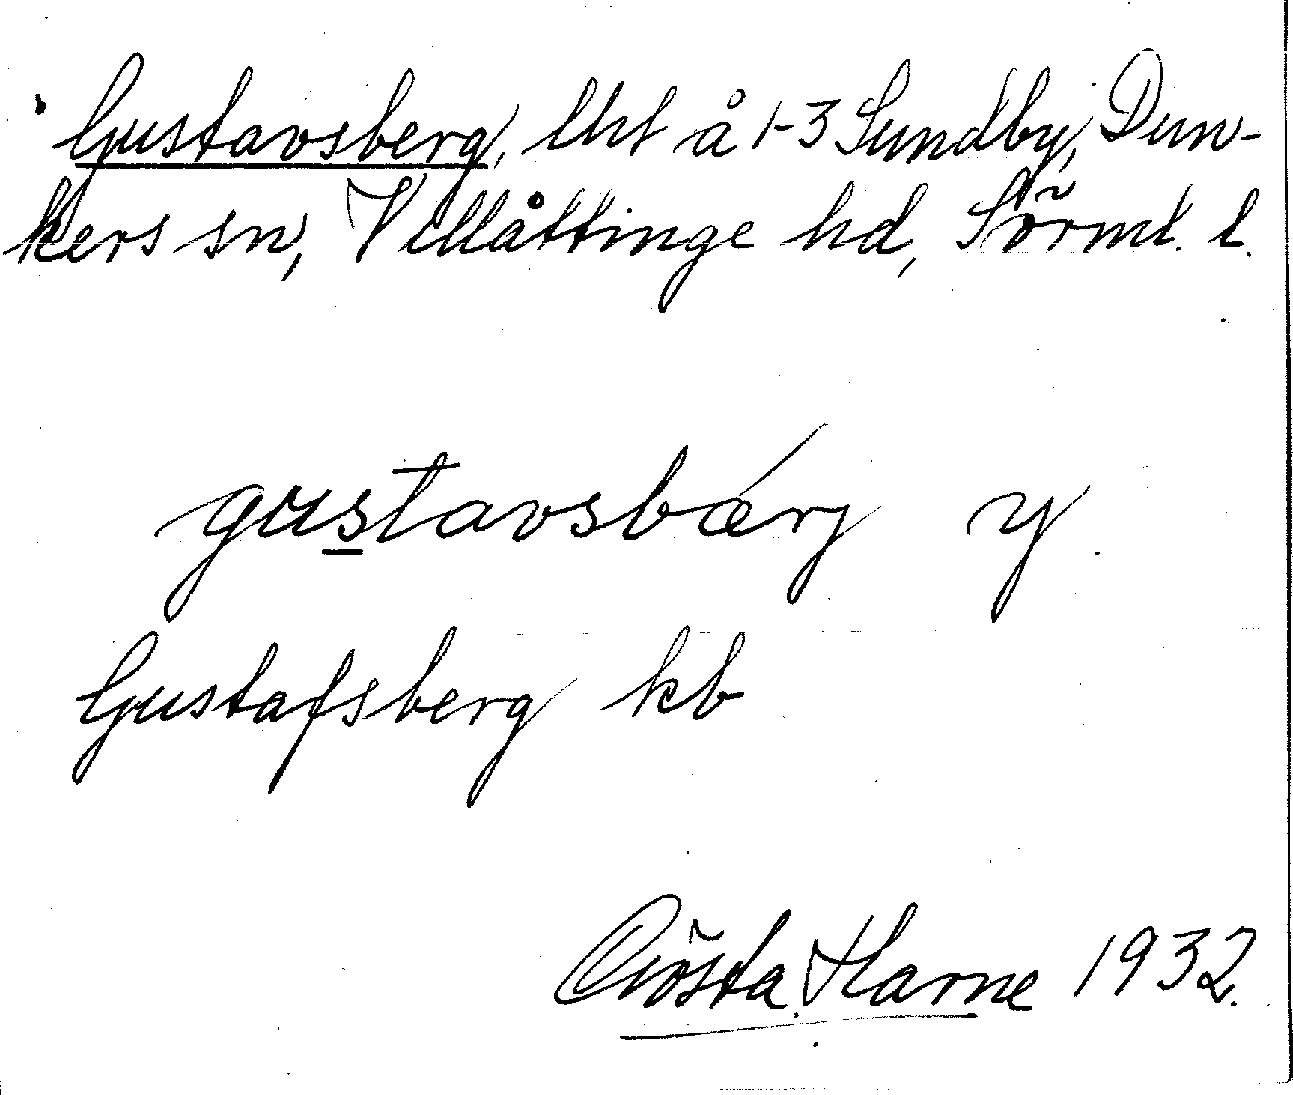 Gustavsberg, lht å 1-3 Sundby, Dun-
kers sn, Villåttinge hd, Sörml. l.
gustavsbærj y.
Gustafsberg kb
Gösta Harne 1932.